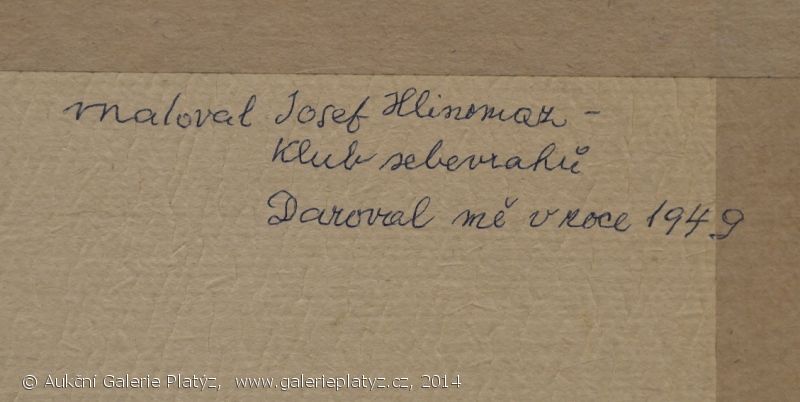 maloval Josef Hlinomaz –
Klub sebevrahů
Daroval mě v roce 1949
© Aukční Galerie Platýz, www.galerieplatyz.cz, 2014